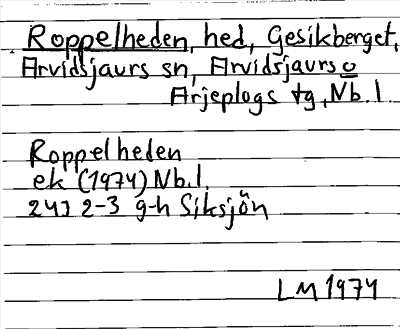 Roppelheden, hed, Gesikberget,
Arvidsjaurs sn, Arvidsjaurs o
Arjeplogs tg, Nb. l.
Roppelheden
ek (1974) Nb. l.
24J 2-3 g-h Siksjön
LM 1974